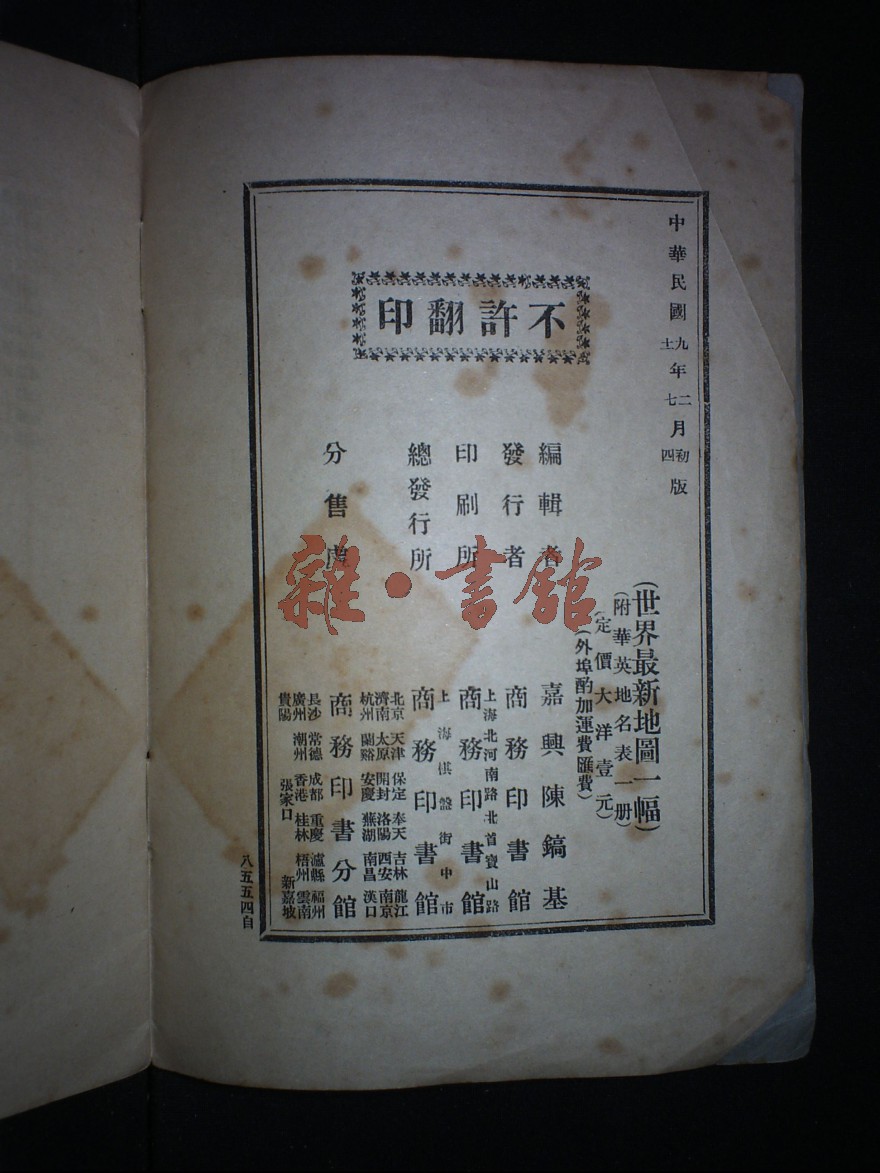 中華民國九十一年二七月初四版
不許翻印
(世界最新地圖一幅)
(附華英地名表一册)
(定價大洋壹元)
(外埠酌加運費匯費)
編輯者 嘉興陳鎬基
發行者 商務印書館
印刷所 上海北河南路北首寶山路
商務印書館
總發行所 上海棋盤街中市
商務印書館
分售處 北京 天津 保定 奉天 吉林 龍江
濟南 太原 開封 洛陽 西安 南京
杭州 蘭谿 安慶 蕪湖 南昌 漢口
商務印書分館
長沙 常德 成都 重慶 瀘縣 福州
廣州 潮州 香港 桂林 梧州 雲南
貴陽 張家口 新嘉坡
八五五四自
雜·書館